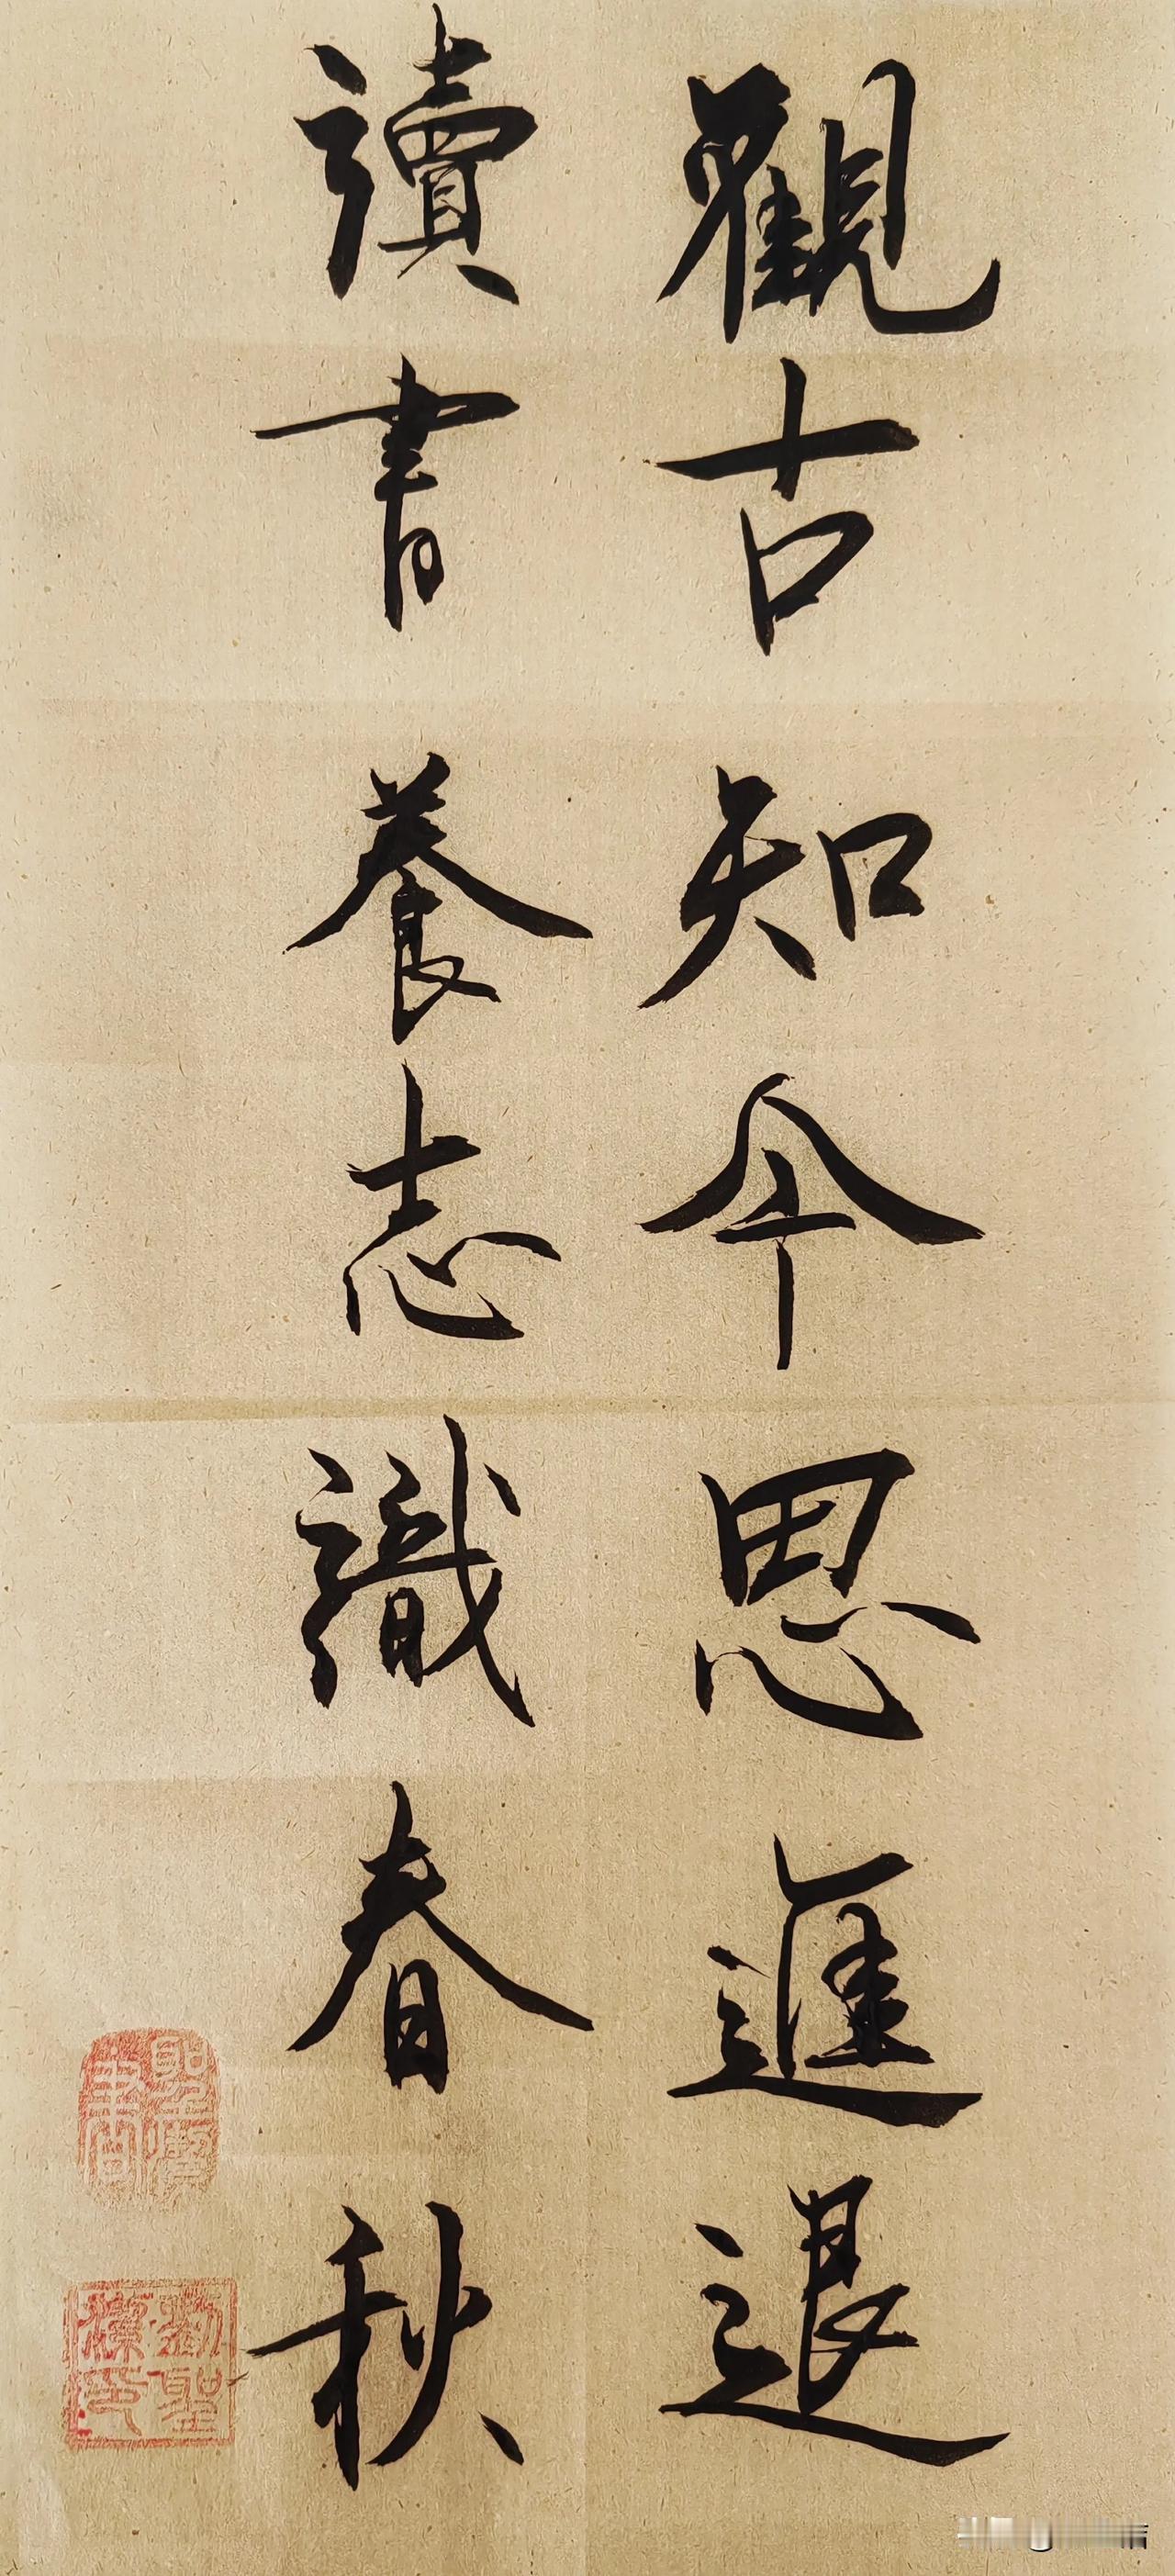 觀古知今思進退
讀書養志識春秋